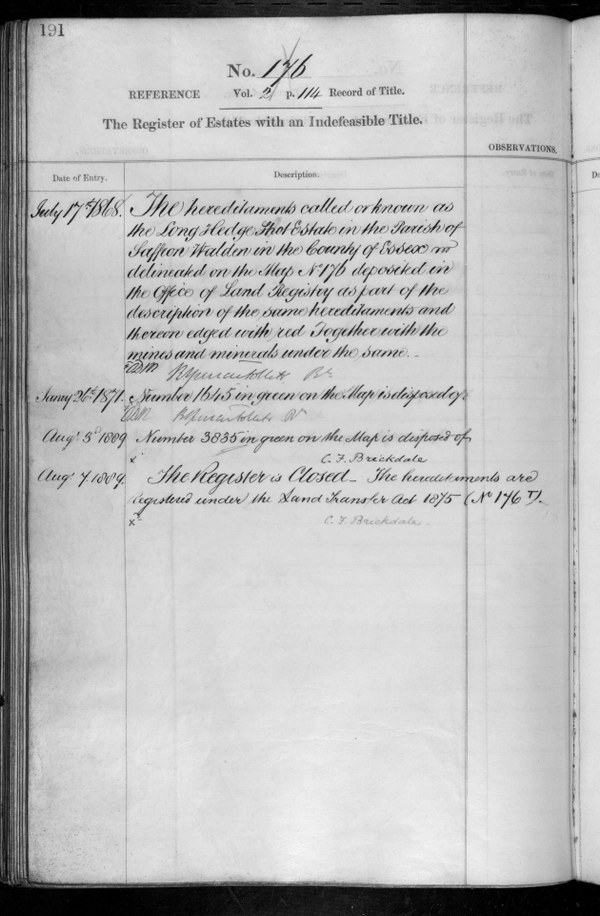 191
No. 176
REFERENCE Vol. 2 p. 114 Record of Title.
The Register of Estates with an Indefeasible Title.
OBSERVATIONS.
Date of Entry. Description.
July 17th 1868. The hereditaments called or known as
the Long Hedge Shot Estate in the Parish of
Saffron Walden in the County of Essex
delineated on the Map No 176 deposited in
the Office of Land Registry as part of the
description of the same hereditaments and
thereon edged with red Together with the
mines and minerals under the same.
1871. Number 1645 in green on the Map is disposed of
Augt 3d 1889 Number 3835 in green on the Map is disposed of
x C. F. Brickdale
Augt 7. 1889. The Register is Closed. The hereditements are
registered under the Land Transfer Act 1875 (No 176 T).
x C. F. Brickdale